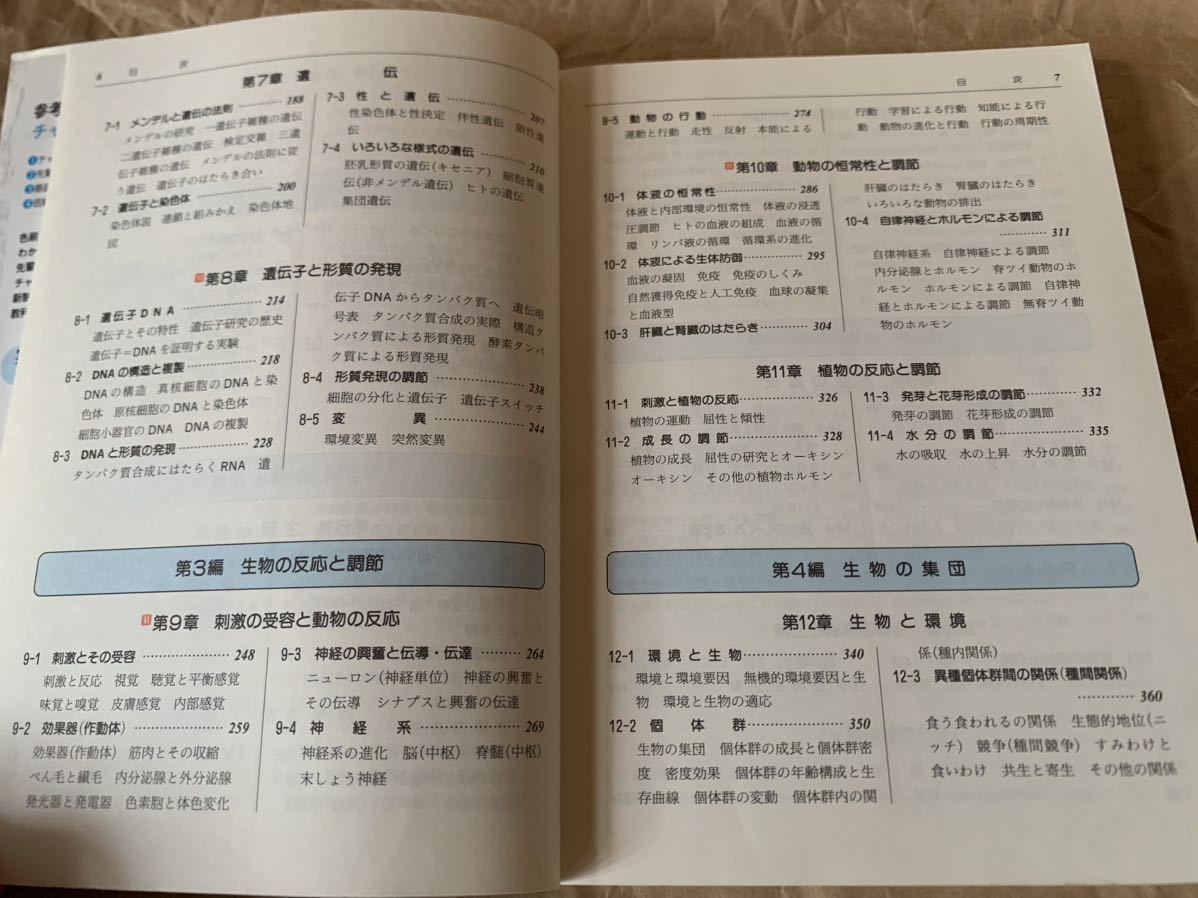 参考
チャ
①チャ
②先輩
③基礎
④図解
色刷
わか
先輩
チャ
新制
教科
6 目次
第7章 遺 伝
7-1 メンデルと遺伝の法則 ………… 188
メンデルの研究 一遺伝子雑種の遺伝
二遺伝子雑種の遺伝 検定交雑 三遺
伝子雑種の遺伝 メンデルの法則に従
う遺伝 遺伝子のはたらき合い
7-2 遺伝子と染色体 ………… 200
染色体説 連鎖と組みかえ 染色体地
図
7-3 性と遺伝 ………… 207
性染色体と性決定 伴性遺伝 限性遺
伝
7-4 いろいろな様式の遺伝 ………… 210
胚乳形質の遺伝(キセニア) 細胞質遺
伝(非メンデル遺伝) ヒトの遺伝
集団遺伝
第8章 遺伝子と形質の発現
8-1 遺伝子DNA ………… 214
遺伝子とその特性 遺伝子研究の歴史
遺伝子=DNAを証明する実験
8-2 DNAの構造と複製 ………… 218
DNAの構造 真核細胞のDNAと染
色体 原核細胞のDNAと染色体
細胞小器官のDNA DNAの複製
8-3 DNAと形質の発現 ………… 228
タンパク質合成にはたらくRNA 遺
伝子DNAからタンパク質へ 遺伝暗
号表 タンパク質合成の実際 構造タ
ンパク質による形質発現 酵素タンパ
ク質による形質発現
8-4 形質発現の調節 ………… 238
細胞の分化と遺伝子 遺伝子スイッチ
8-5 変 異 ………… 244
環境変異 突然変異
第3編 生物の反応と調節
第9章 刺激の受容と動物の反応
9-1 刺激とその受容 ………… 248
刺激と反応 視覚 聴覚と平衡感覚
味覚と嗅覚 皮膚感覚 内部感覚
9-2 効果器(作動体) ………… 259
効果器(作動体) 筋肉とその収縮
べん毛と繊毛 内分泌腺と外分泌腺
発光器と発電器 色素胞と体色変化
9-3 神経の興奮と伝導・伝達 ………… 264
ニューロン(神経単位) 神経の興奮と
その伝導 シナプスと興奮の伝達
9-4 神経系 ………… 269
神経系の進化 脳(中枢) 脊髄(中枢)
末しょう神経
目次 7
9-5 動物の行動 ………… 274
運動と行動 走性 反射 本能による
行動 学習による行動 知能による行
動 動物の進化と行動 行動の周期性
第10章 動物の恒常性と調節
10-1 体液の恒常性 ………… 286
体液と内部環境の恒常性 体液の浸透
圧調節 ヒトの血液の組成 血液の循
環 リンパ液の循環 循環系の進化
10-2 体液による生体防御 ………… 295
血液の凝固 免疫 免疫のしくみ
自然獲得免疫と人工免疫 血球の凝集
と血液型
10-3 肝臓と腎臓のはたらき ………… 304
肝臓のはたらき 腎臓のはたらき
いろいろな動物の排出
10-4 自律神経とホルモンによる調節
………… 311
自律神経系 自律神経による調節
内分泌腺とホルモン 脊ツイ動物のホ
ルモン ホルモンによる調節 自律神
経とホルモンによる調節 無脊ツイ動
物のホルモン
第11章 植物の反応と調節
11-1 刺激と植物の反応 ………… 326
植物の運動 屈性と傾性
11-2 成長の調節 ………… 328
植物の成長 屈性の研究とオーキシン
オーキシン その他の植物ホルモン
11-3 発芽と花芽形成の調節 ………… 332
発芽の調節 花芽形成の調節
11-4 水分の調節 ………… 335
水の吸収 水の上昇 水分の調節
第4編 生物の集団
第12章 生物と環境
12-1 環境と生物 ………… 340
環境と環境要因 無機的環境要因と生
物 環境と生物の適応
12-2 個体群 ………… 350
生物の集団 個体群の成長と個体群密
度 密度効果 個体群の年齢構成と生
存曲線 個体群の変動 個体群内の関
係(種内関係)
12-3 異種個体群間の関係(種間関係)
………… 360
食う食われるの関係 生態的地位(ニ
ッチ) 競争(種間競争) すみわけと
食いわけ 共生と寄生 その他の関係